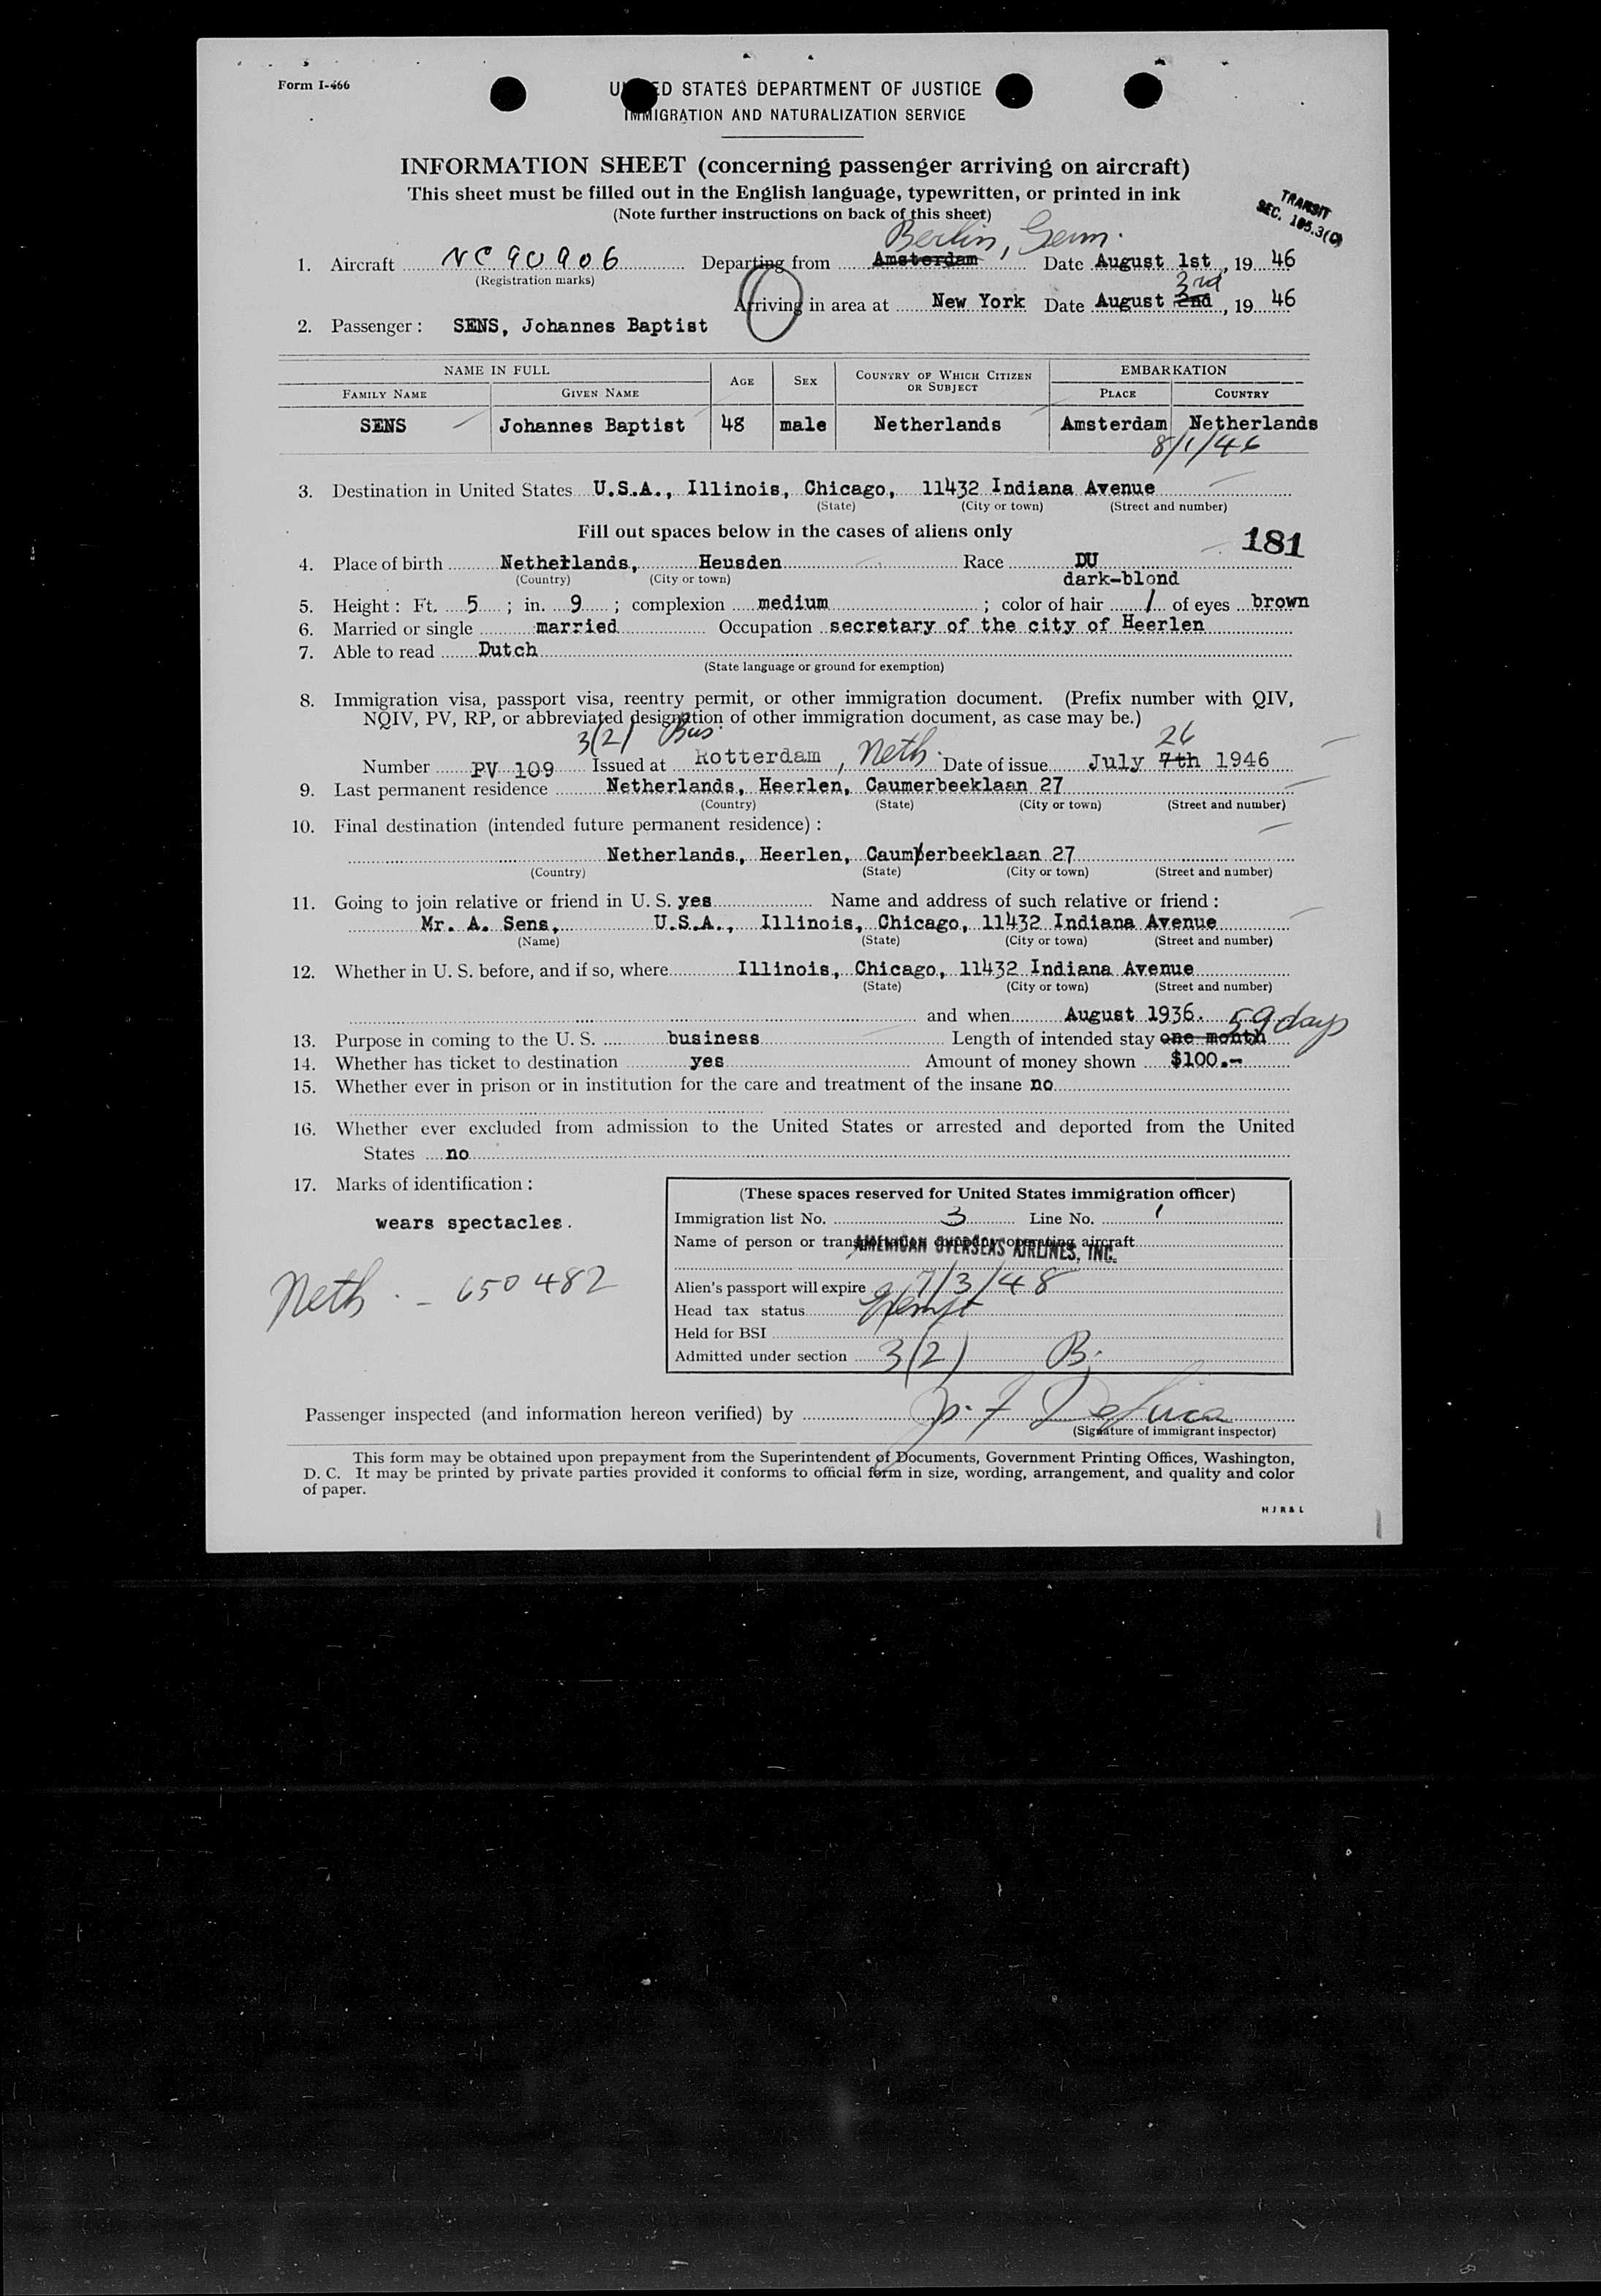 Form I-466
UNITED STATES DEPARTMENT OF JUSTICE
IMMIGRATION AND NATURALIZATION SERVICE
INFORMATION SHEET (concerning passenger arriving on aircraft)
This sheet must be filled out in the English language, typewritten, or printed in ink
(Note further instructions on back of this sheet)
TRANSIT
SEC. 105.3(C)
Berlin, Germ.
1. Aircraft NC 90906 Departing from Amsterdam Date August 1st, 19 46
(Registration marks)
3rd
Arriving in area at New York Date August 2nd, 19 46
2. Passenger: SENS, Johannes Baptist
NAME IN FULL AGE SEX COUNTRY OF WHICH CITIZEN OR SUBJECT EMBARKATION
FAMILY NAME GIVEN NAME PLACE COUNTRY
SENS Johannes Baptist 48 male Netherlands Amsterdam Netherlands
8/1/46
3. Destination in United States U.S.A., Illinois, Chicago, 11432 Indiana Avenue
(State) (City or town) (Street and number)
Fill out spaces below in the cases of aliens only
181
4. Place of birth Netherlands, Heusden Race DU
(Country) (City or town)
dark-blond
5. Height: Ft. 5; in. 9; complexion medium; color of hair / of eyes brown
6. Married or single married Occupation secretary of the city of Heerlen
7. Able to read Dutch
(State language or ground for exemption)
8. Immigration visa, passport visa, reentry permit, or other immigration document. (Prefix number with QIV,
NQIV, PV, RP, or abbreviated designation of other immigration document, as case may be.)
3(2) Bus. 26
Number PV 109 Issued at Rotterdam, Neth. Date of issue July 7th 1946
9. Last permanent residence Netherlands, Heerlen, Caumerbeeklaan 27
(Country) (State) (City or town) (Street and number)
10. Final destination (intended future permanent residence):
Netherlands, Heerlen, Caumerbeeklaan 27
(Country) (State) (City or town) (Street and number)
11. Going to join relative or friend in U. S. yes Name and address of such relative or friend:
Mr. A. Sens, U.S.A., Illinois, Chicago, 11432 Indiana Avenue
(Name) (State) (City or town) (Street and number)
12. Whether in U. S. before, and if so, where Illinois, Chicago, 11432 Indiana Avenue
(State) (City or town) (Street and number)
and when August 1936.
59 days
13. Purpose in coming to the U. S. business Length of intended stay one month
14. Whether has ticket to destination yes Amount of money shown $100.-
15. Whether ever in prison or in institution for the care and treatment of the insane no
16. Whether ever excluded from admission to the United States or arrested and deported from the United
States no
17. Marks of identification:
wears spectacles.
Neth. - 650482
(These spaces reserved for United States immigration officer)
Immigration list No. 3 Line No. 1
Name of person or transportation company operating aircraft
AMERICAN OVERSEAS AIRLINES, INC.
Alien's passport will expire 7/3/48
Head tax status Exempt
Held for BSI
Admitted under section 3(2) B.
Passenger inspected (and information hereon verified) by
(Signature of immigrant inspector)
This form may be obtained upon prepayment from the Superintendent of Documents, Government Printing Offices, Washington,
D. C. It may be printed by private parties provided it conforms to official form in size, wording, arrangement, and quality and color
of paper.
H J R & L